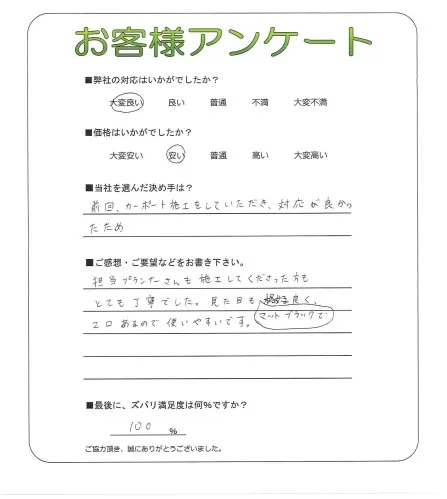 お客様アンケート
■弊社の対応はいかがでしたか?
大変良い 良い 普通 不満 大変不満
■価格はいかがでしたか?
大変安い 安い 普通 高い 大変高い
■当社を選んだ決め手は?
前回、カーポート施工をしていただき、対応が良かっ
たため
■ご感想・ご要望などをお書き下さい。
担当プランナーさんも施工してくださった方も
とても丁寧でした。見た目も 良く、
マットブラックで
2口あるので使いやすいです。
■最後に、ズバリ満足度は何%ですか?
100 %
ご協力頂き、誠にありがとうございました。